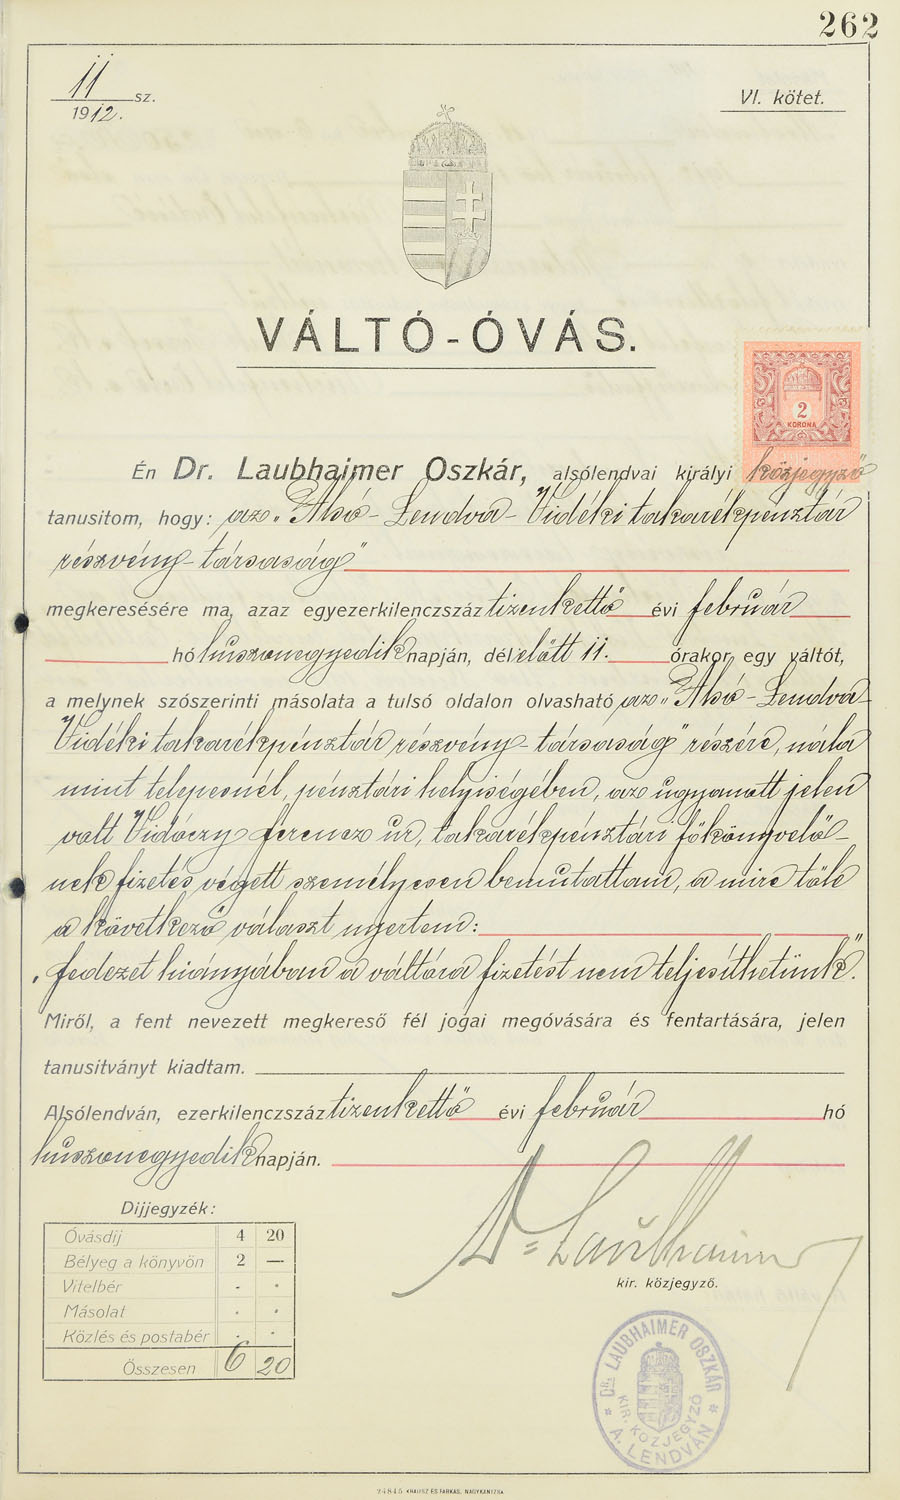 262
11 sz.
1912.
VI. kötet.
VÁLTÓ-ÓVÁS.
2
KORONA
Én Dr. Laubhaimer Oszkár, alsólendvai királyi közjegyző
tanusitom, hogy: az „Alsó-Lendva-Vidéki takarékpénztár
részvény-társaság"
megkeresésére ma, azaz egyezerkilenczszáz tizenkettő évi február
hó huszonegyedik napján, dél előtt 11. órakor egy váltót,
a melynek szószerinti másolata a tulsó oldalon olvasható az „Alsó-Lendva-
Vidéki takarékpénztár részvény-társaság" részére, nála
mint telepesnél, pénztári helyiségében, az ugyanott jelen
volt Vidóczy Ferencz úr, takarékpénztári főkönyvelő-
nek fizetés végett személyesen bemutattam, a mire tőle
a következő választ nyertem:
„Fedezet hiányában a váltóra fizetést nem teljesíthetünk".
Miről, a fent nevezett megkereső fél jogai megóvására és fentartására, jelen
tanusitványt kiadtam.
Alsólendván, ezerkilenczszáz tizenkettő évi február hó
huszonegyedik napján.
Dijjegyzék:
Óvásdij 4 20
Bélyeg a könyvön 2 —
Vitelbér - -
Másolat - -
Közlés és postabér - -
Összesen 6 20
Dr Laubhaimer
kir. közjegyző.
DR. LAUBHAIMER OSZKÁR
KIR. KÖZJEGYZŐ
A. LENDVÁN
24845 KRAUSZ ÉS FARKAS, NAGYKANIZSA